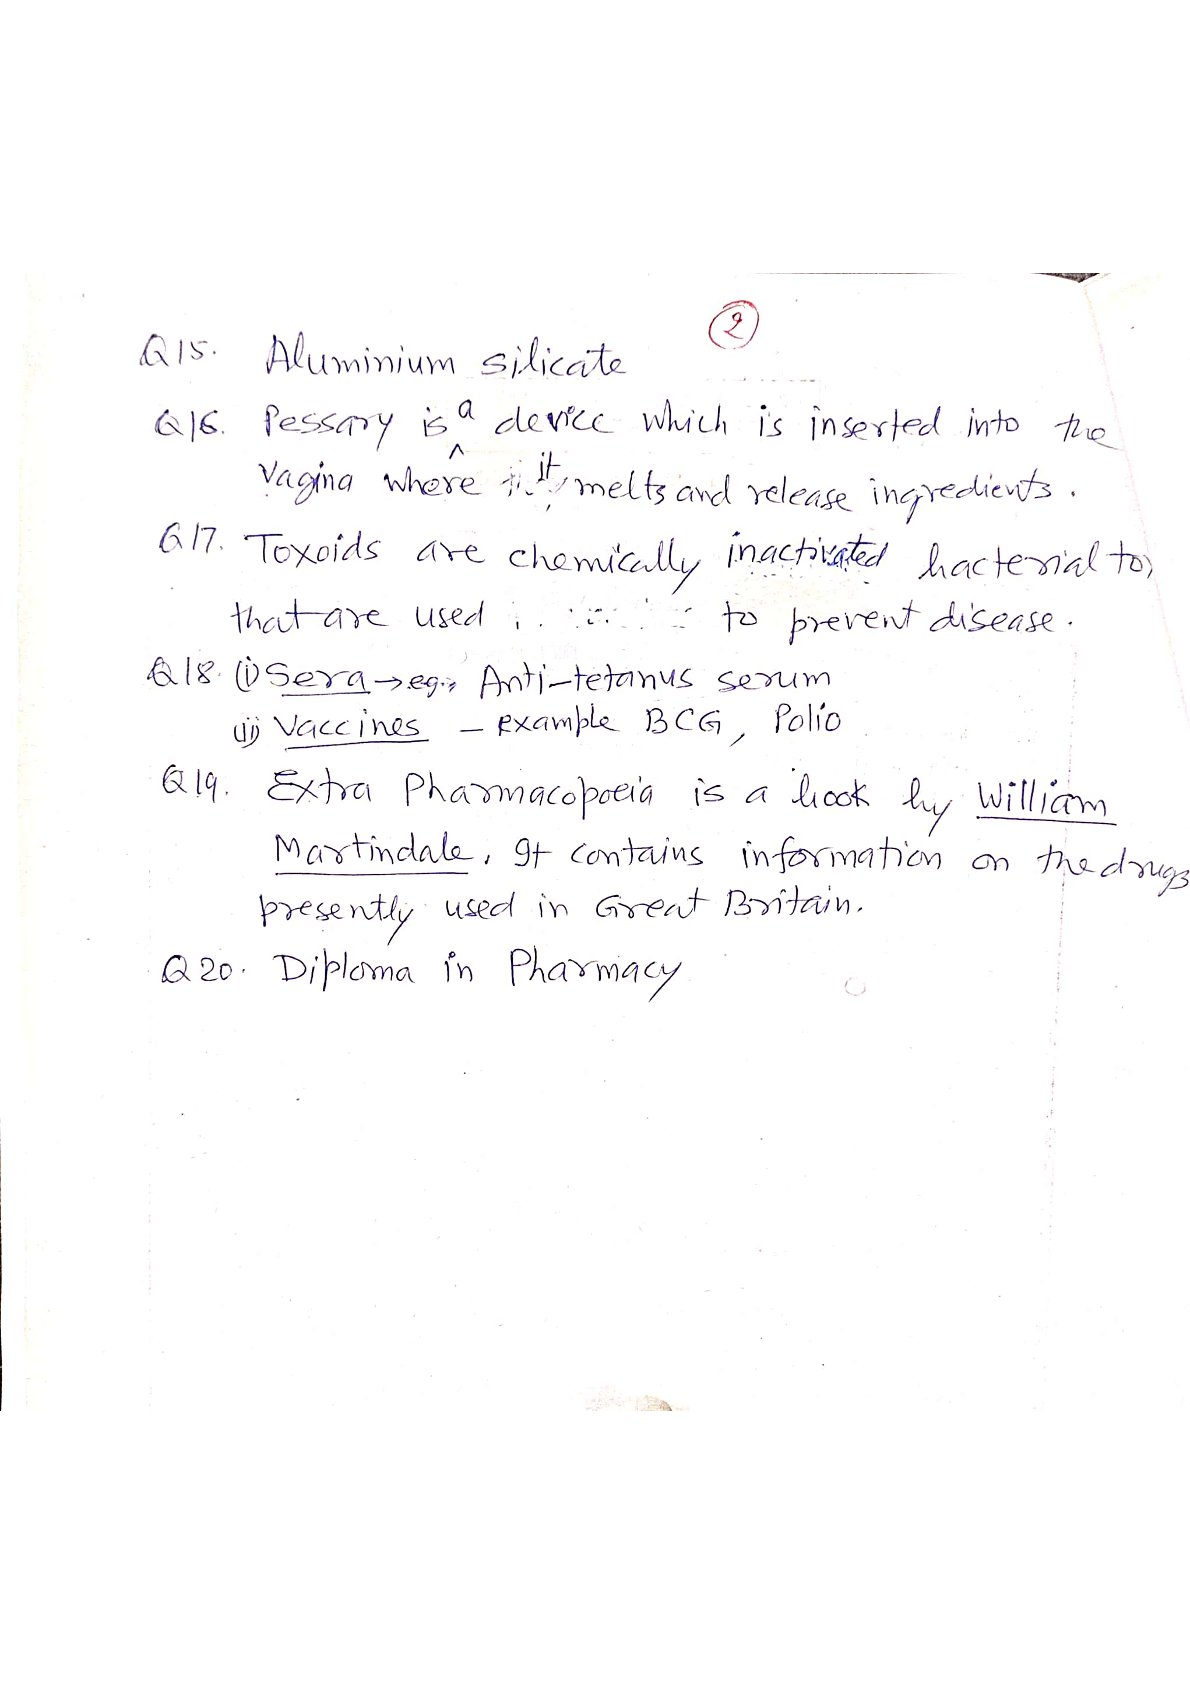 2
Q15. Aluminium silicate
Q16. Pessary is a device which is inserted into the
Vagina where it melts and release ingredients.
Q17. Toxoids are chemically inactivated bacterial
that are used to prevent disease.
Q18. (i) Sera → eg., Anti-tetanus serum
(ii) Vaccines - example BCG, Polio
Q19. Extra Pharmacopoeia is a book by William
Martindale. It contains information on the drugs
presently used in Great Britain.
Q20. Diploma in Pharmacy